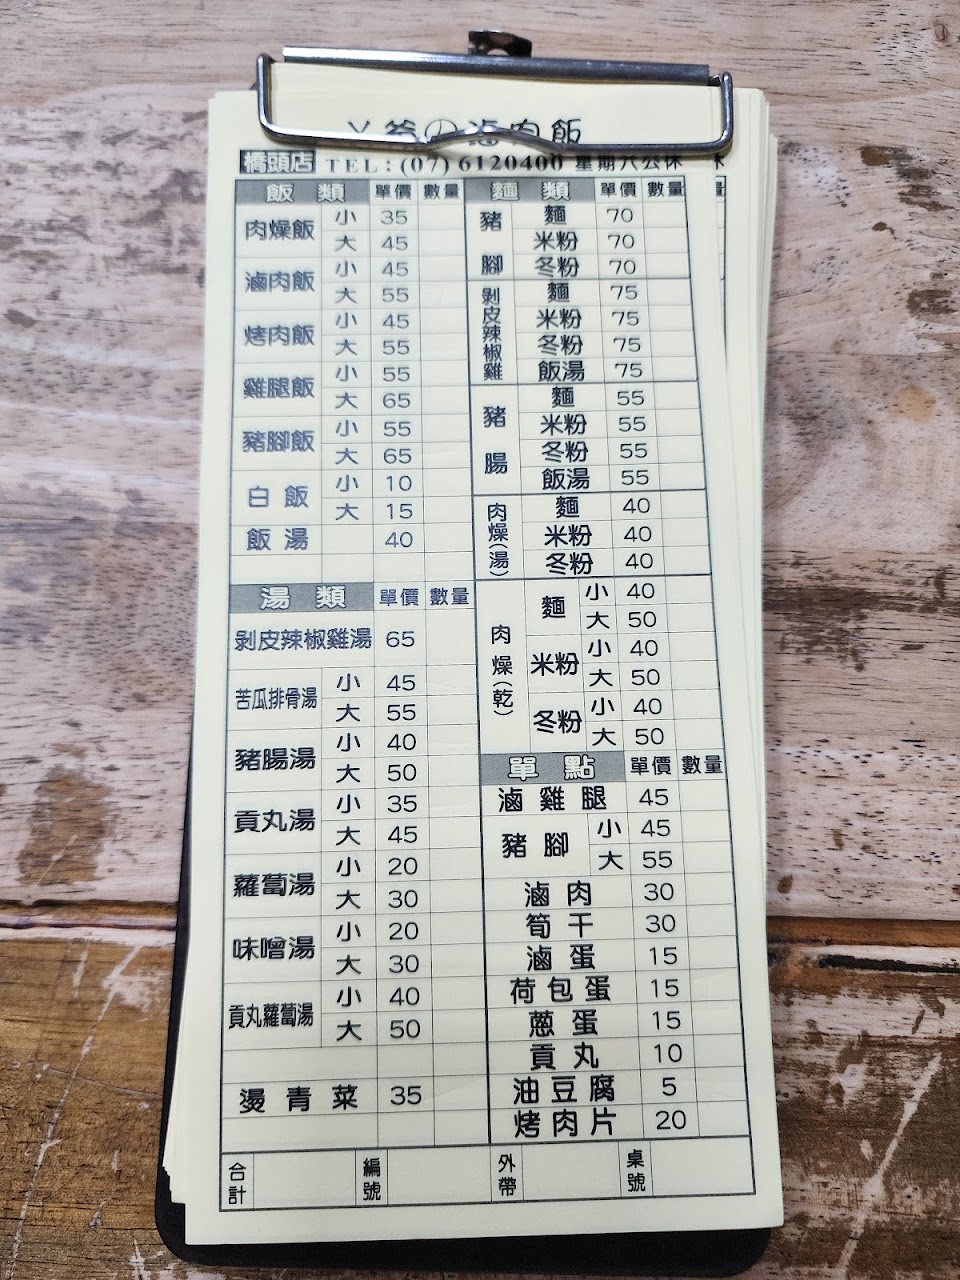 丫爸の滷肉飯
橋頭店 TEL:(07) 6120400 星期六公休
飯類 單價 數量
肉燥飯 小 35
大 45
滷肉飯 小 45
大 55
烤肉飯 小 45
大 55
雞腿飯 小 55
大 65
豬腳飯 小 55
大 65
白飯 小 10
大 15
飯湯 40
湯類 單價 數量
剝皮辣椒雞湯 65
苦瓜排骨湯 小 45
大 55
豬腸湯 小 40
大 50
貢丸湯 小 35
大 45
蘿蔔湯 小 20
大 30
味噌湯 小 20
大 30
貢丸蘿蔔湯 小 40
大 50
燙青菜 35
麵類 單價 數量
豬腳 麵 70
米粉 70
冬粉 70
剝皮辣椒雞 麵 75
米粉 75
冬粉 75
飯湯 75
豬腸 麵 55
米粉 55
冬粉 55
飯湯 55
肉燥(湯) 麵 40
米粉 40
冬粉 40
肉燥(乾) 麵 小 40
大 50
米粉 小 40
大 50
冬粉 小 40
大 50
單點 單價 數量
滷雞腿 45
豬腳 小 45
大 55
滷肉 30
筍干 30
滷蛋 15
荷包蛋 15
蔥蛋 15
貢丸 10
油豆腐 5
烤肉片 20
合計 編號 外帶 桌號